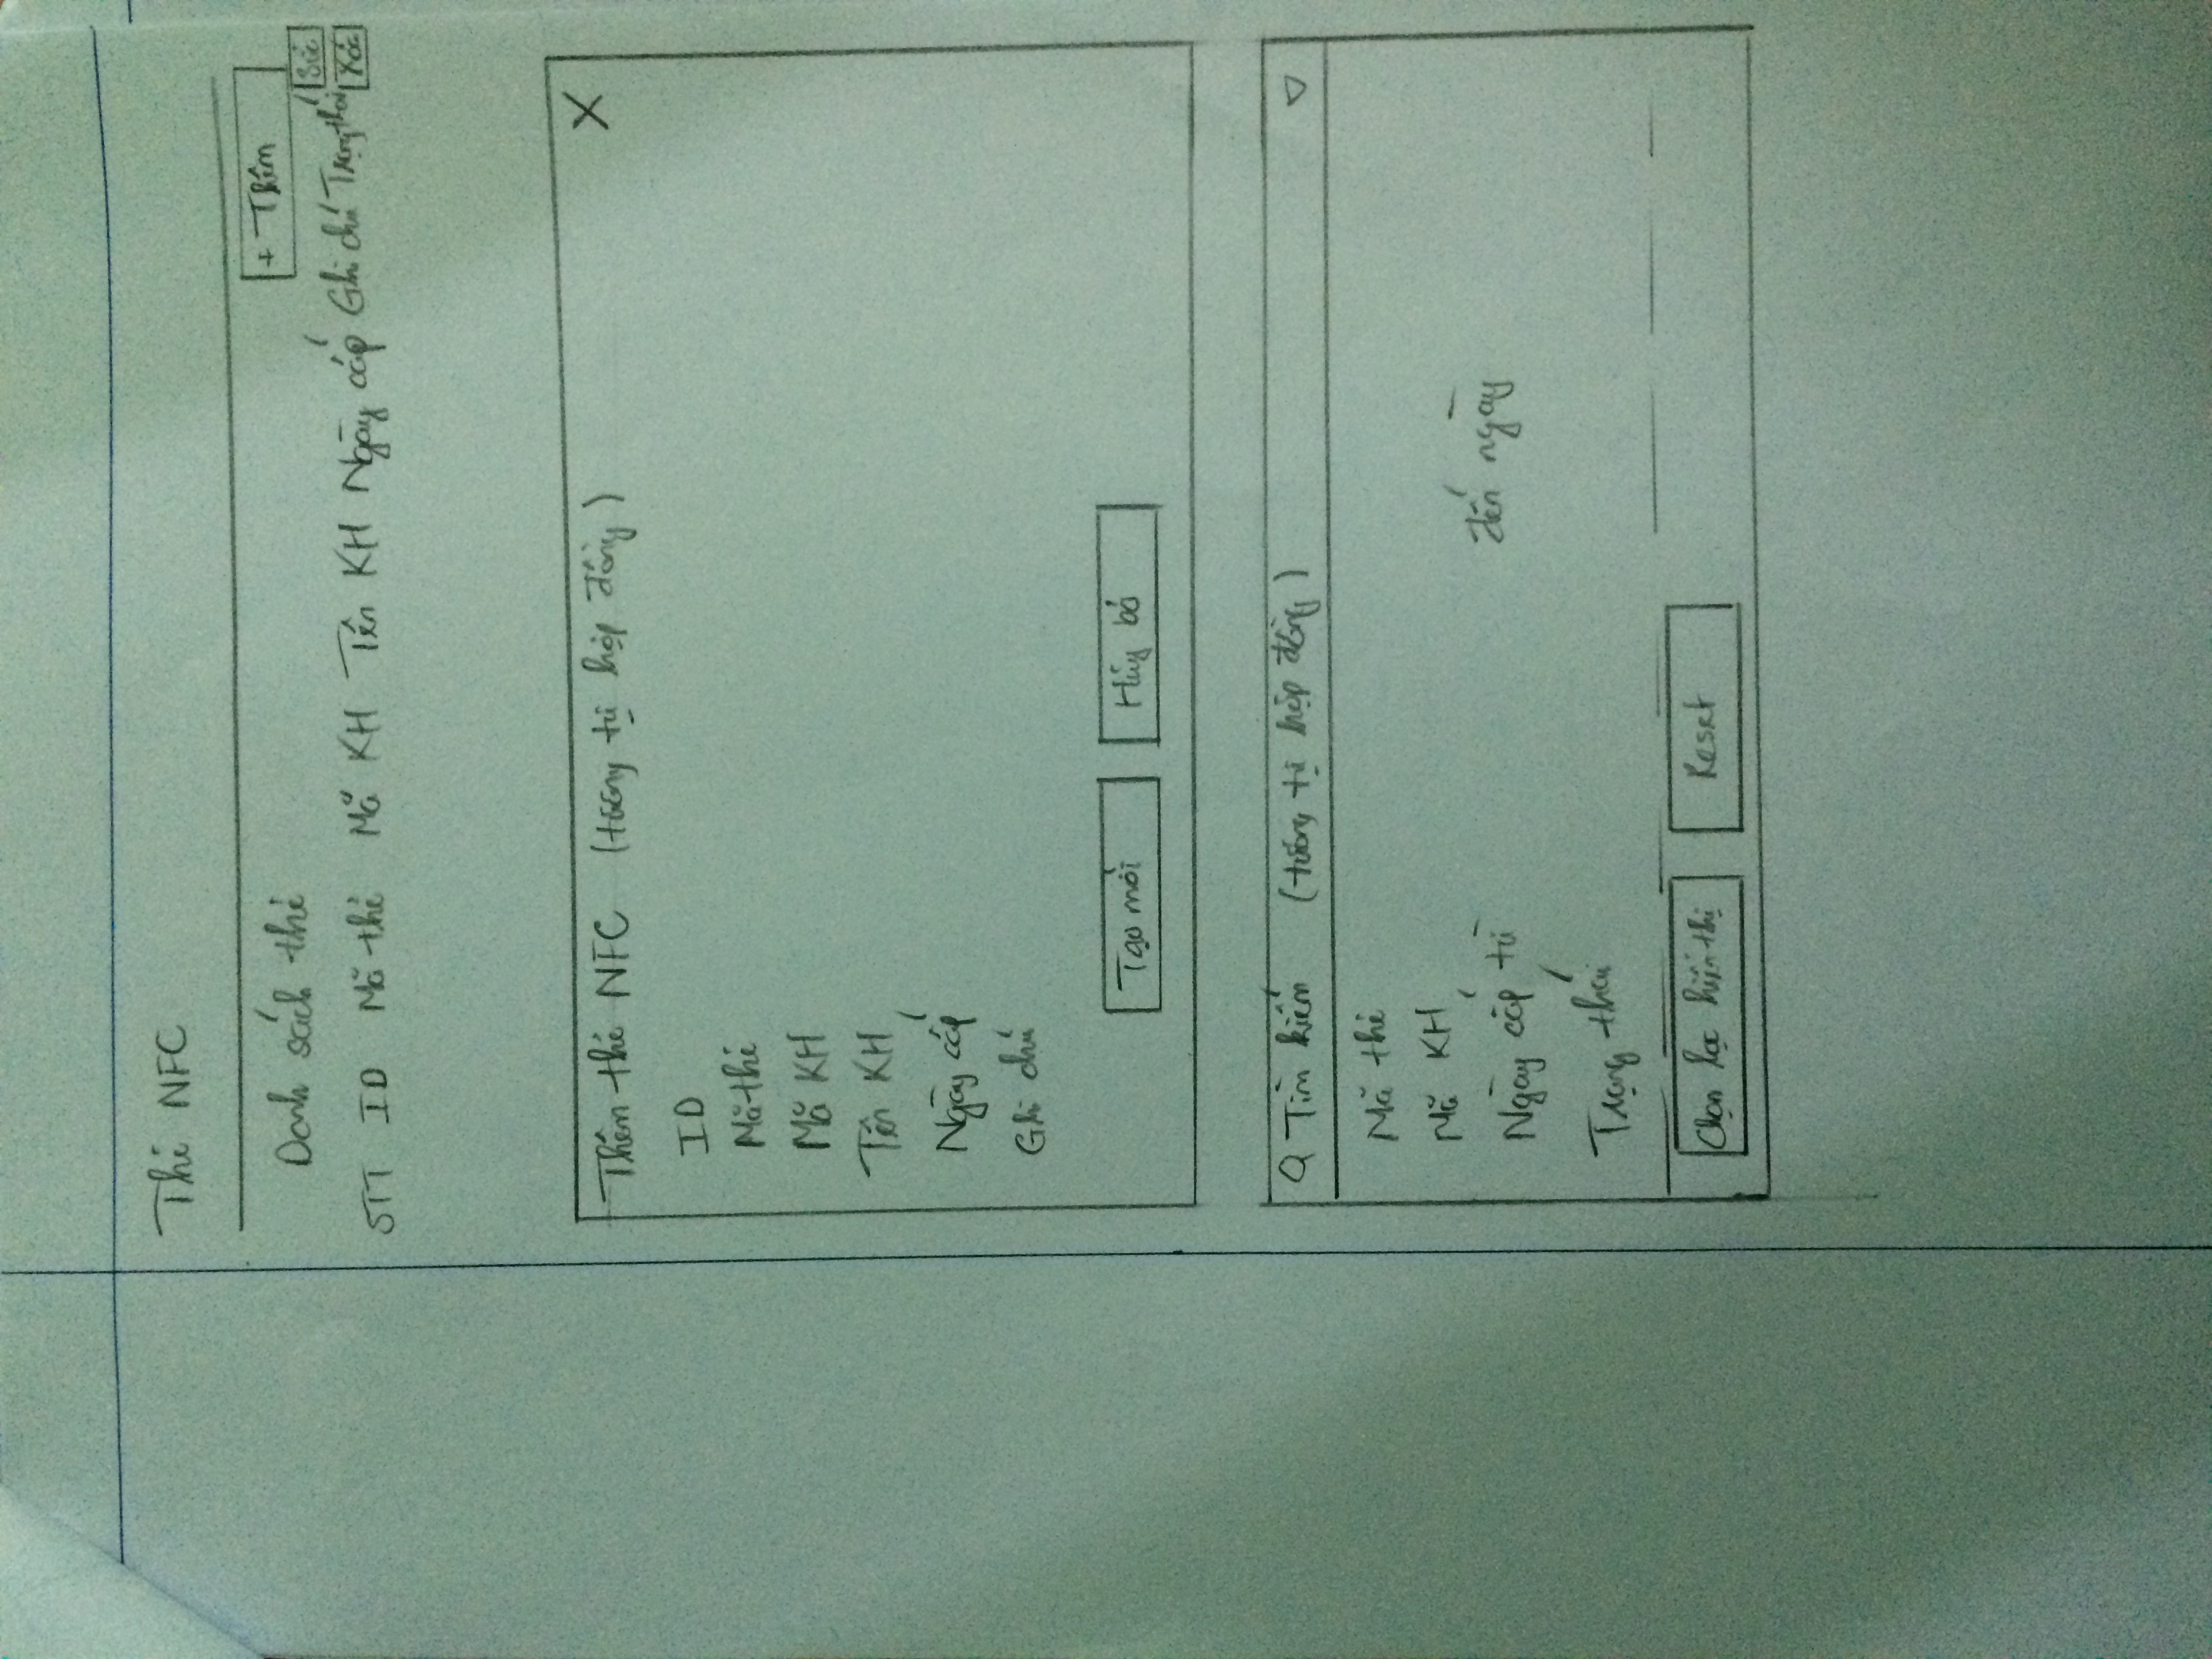 Thẻ NFC
+ Thêm
Danh sách thẻ
Sửa
STT ID Mã thẻ Mã KH Tên KH Ngày cấp Ghi chú Trạng thái
Xóa
Thêm thẻ NFC (tương tự hợp đồng) X
ID
Mã thẻ
Mã KH
Tên KH
Ngày cấp
Ghi chú
Tạo mới Hủy bỏ
Tìm kiếm (tương tự hợp đồng)
Mã thẻ
Mã KH
Ngày cấp từ đến ngày
Trạng thái
Chọn lọc hiển thị Reset